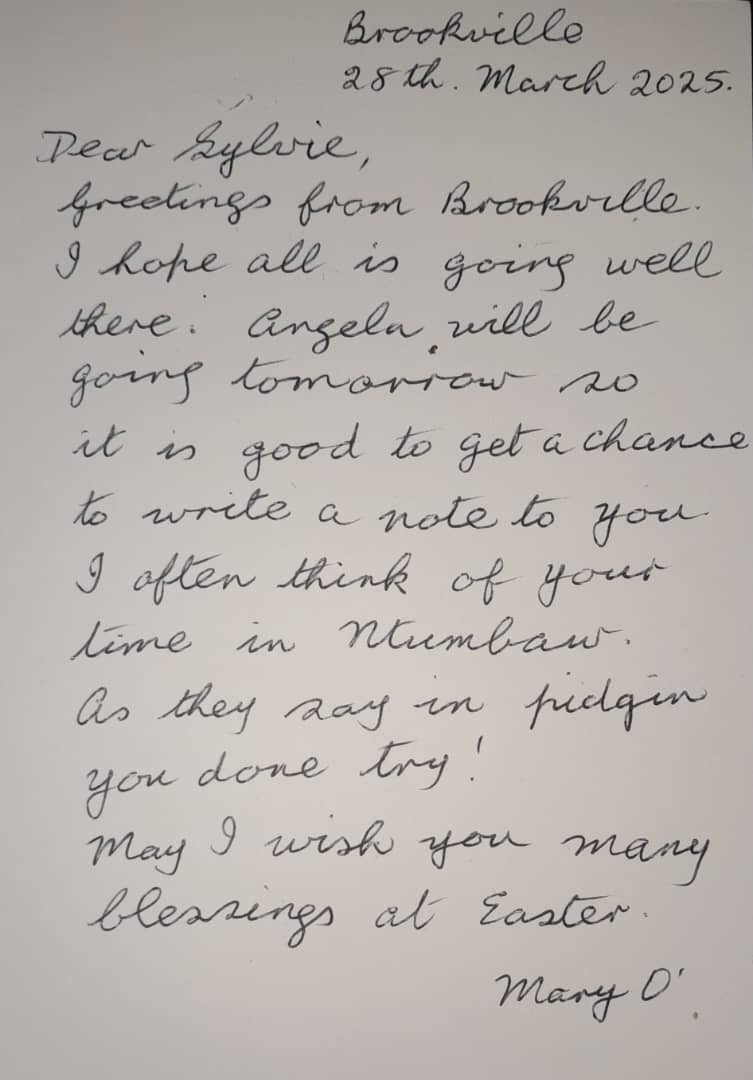 Brookville
28th. March 2025.
Dear Sylvie,
Greetings from Brookville.
I hope all is going well
there. Angela will be
going tomorrow so
it is good to get a chance
to write a note to you
I often think of your
time in Ntumbaw.
As they say in pidgin
you done try!
May I wish you many
blessings at Easter.
Mary O'.